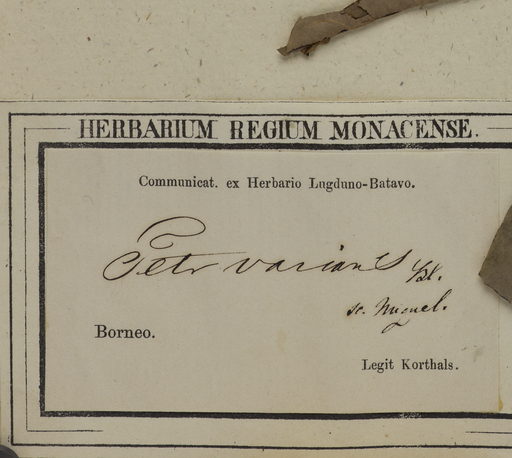 HERBARIUM REGIUM MONACENSE.
Communicat. ex Herbario Lugduno-Batavo.
Petr varians Bl.
sc. Miquel.
Borneo.
Legit Korthals.